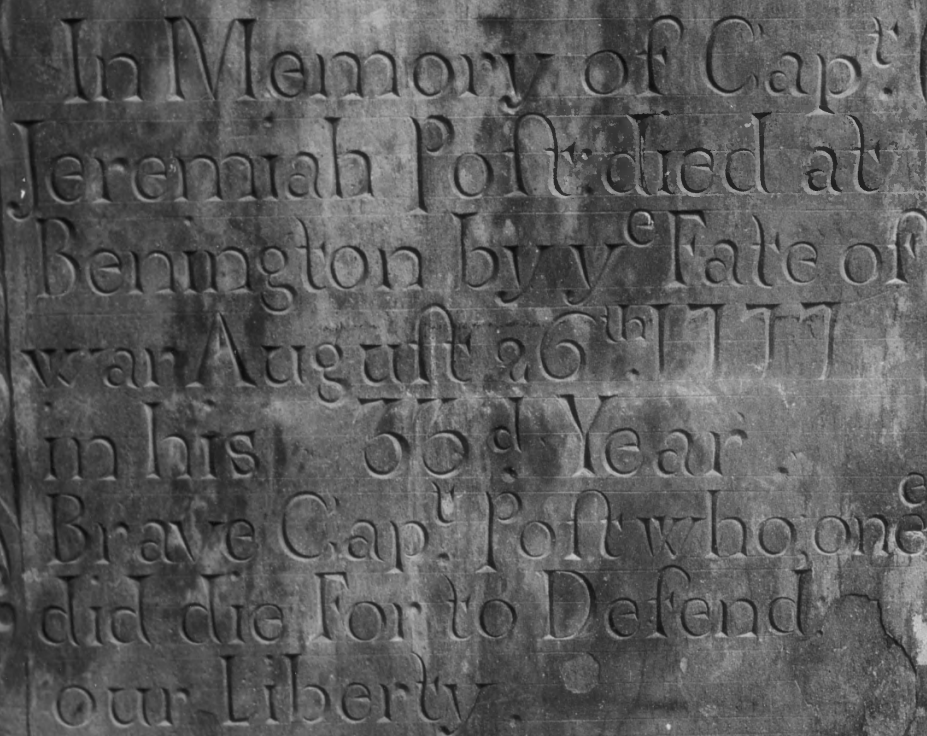 In Memory of Capᵗ.
Jeremiah Poſt died at
Benington by yᵉ Fate of
war Auguſt 26ᵗʰ 1777
in his 36ᵈ Year .
Brave Capᵗ. Poſt who onᵉ
did die For to Defend.
our Liberty .